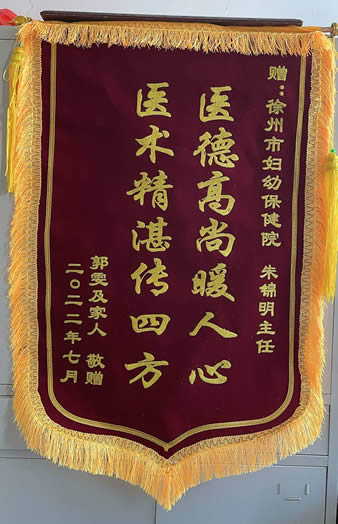 赠：徐州市妇幼保健院 朱锦明主任
医德高尚暖人心
医术精湛传四方
郭雯及家人 敬赠
二〇二二年七月